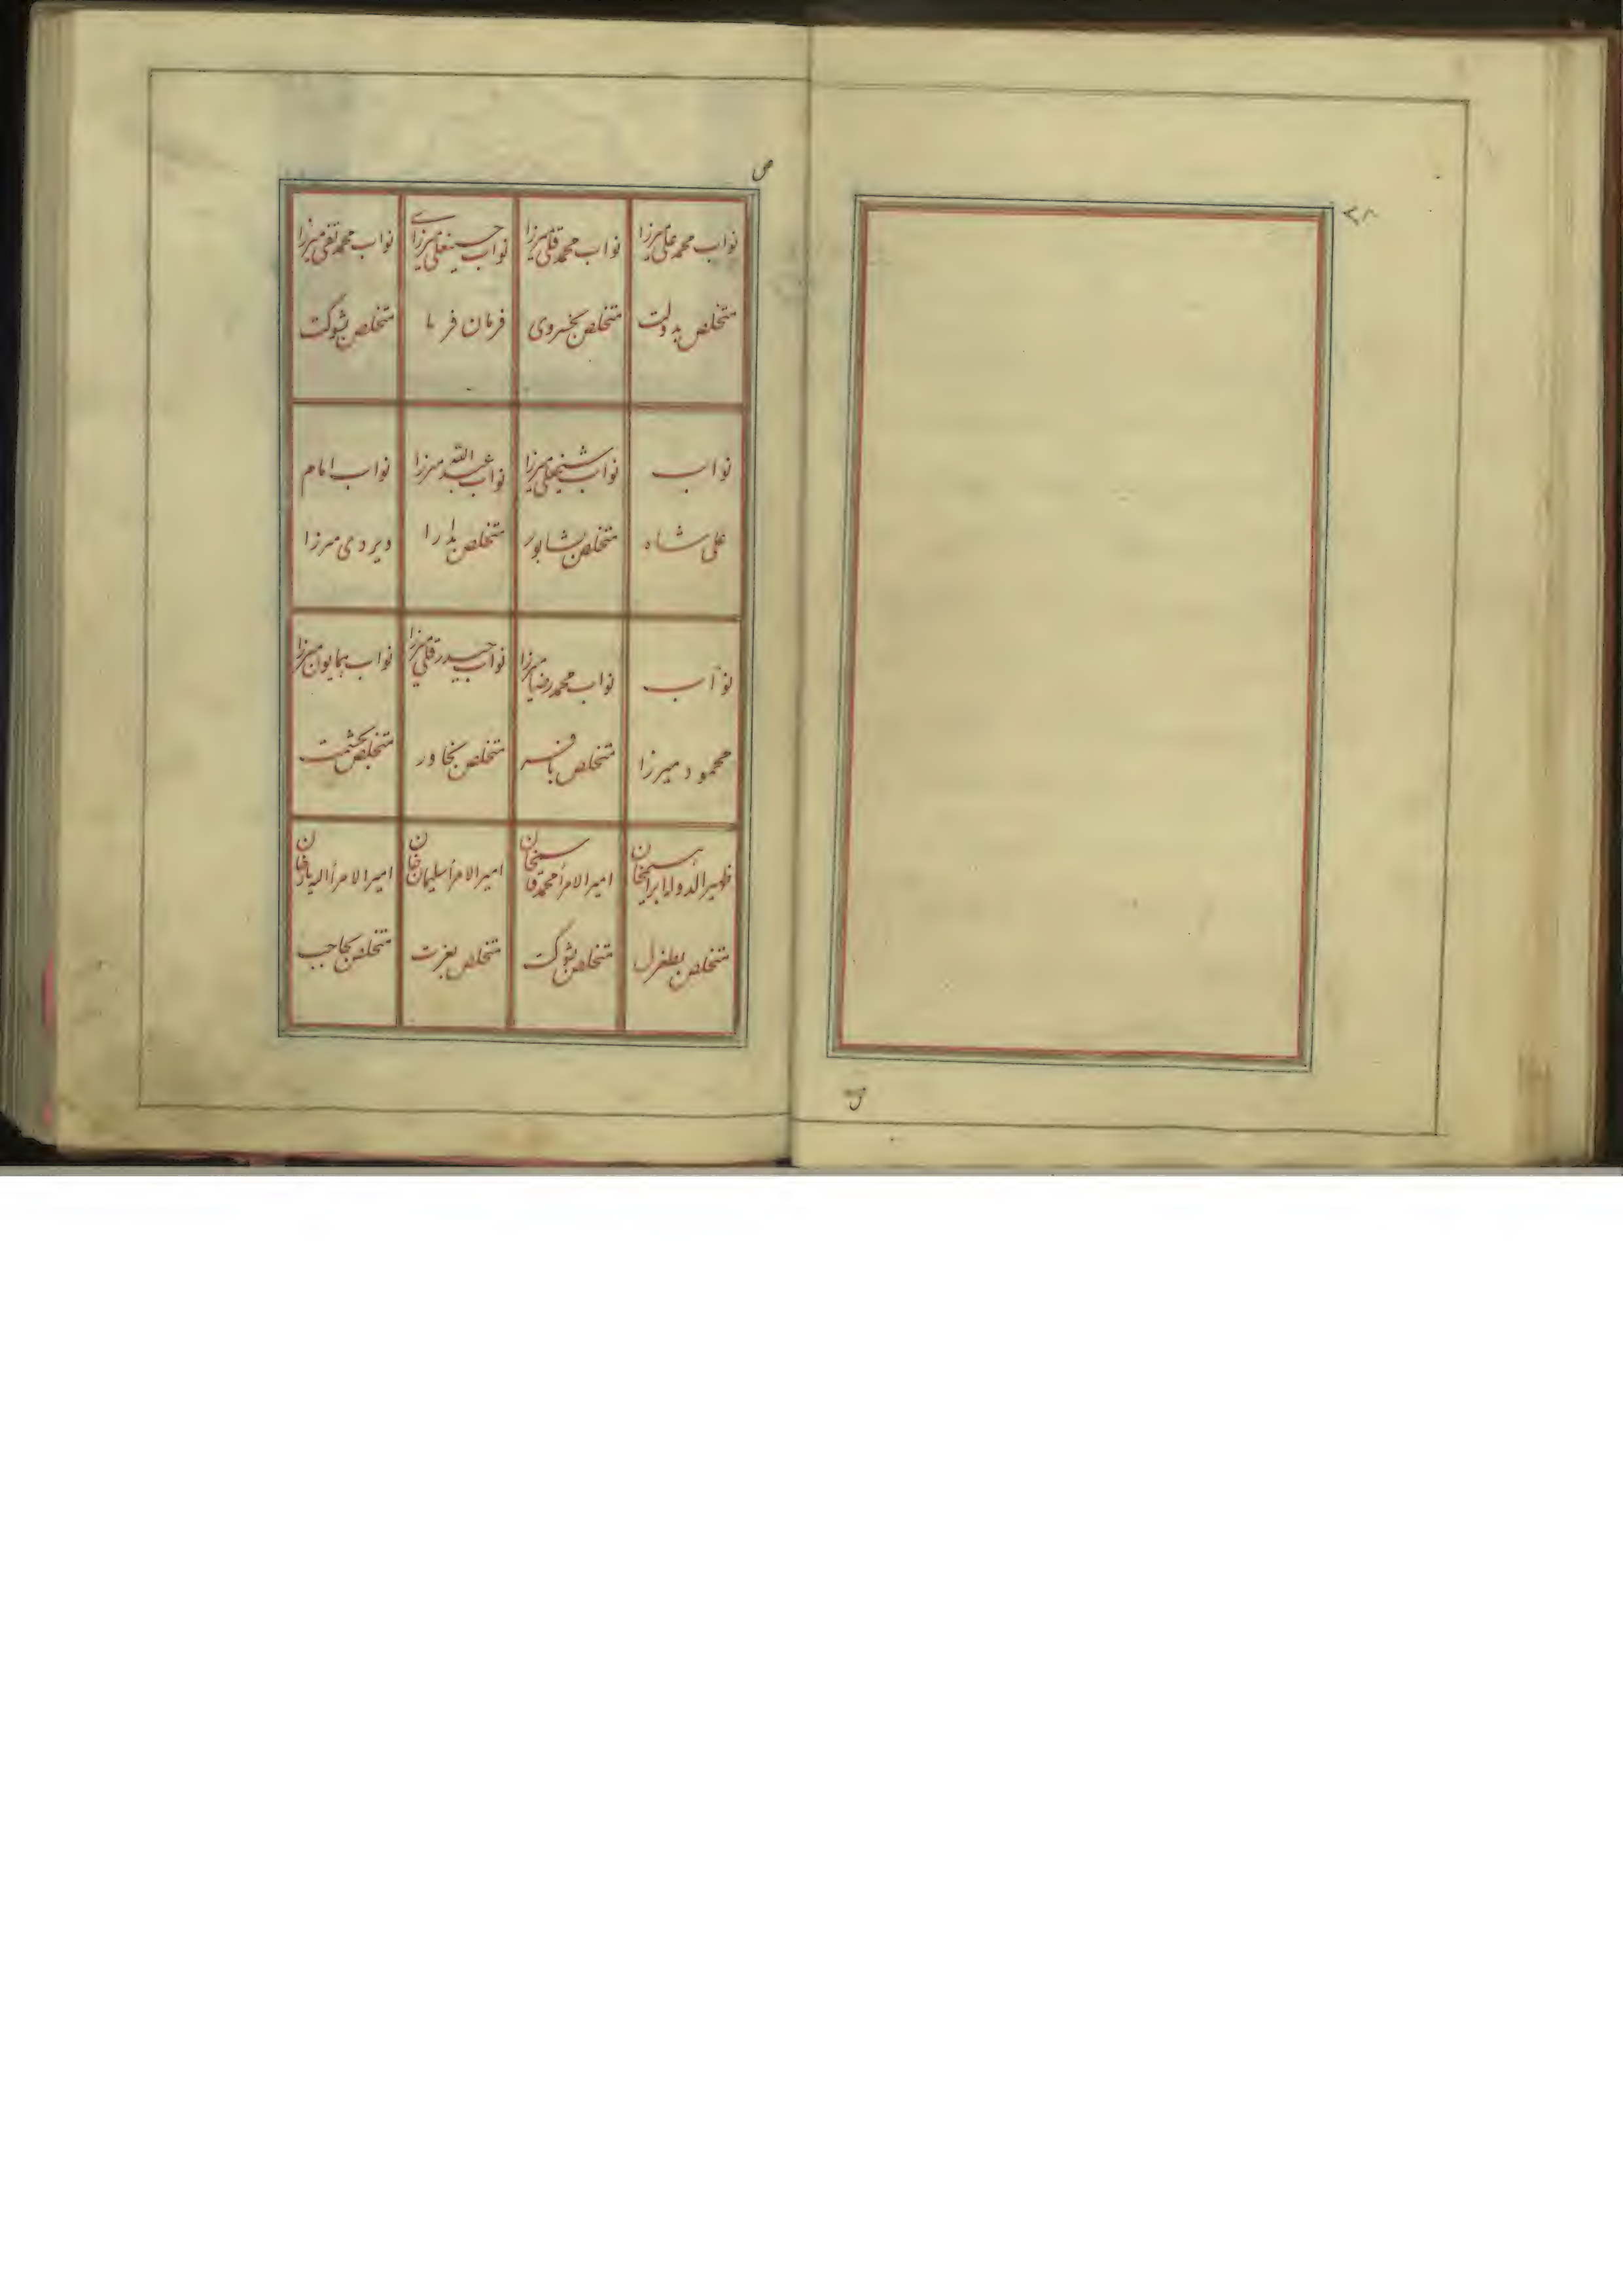 ۲۸
ص
نواب محمد علی میرزا
متخلص بدولت
نواب محمد قلی میرزا
متخلص بخسروی
نواب حسینعلی میرزای
فرمان فرما
نواب محمد تقی میرزا
متخلص بشوکت
نواب
علی شاه
نواب شیخعلی میرزا
متخلص بشاپور
نواب عبدالله میرزا
متخلص بدارا
نواب امام
ویردی میرزا
نواب
محمود میرزا
نواب محمد رضا میرزا
متخلص بافسر
نواب حیدر قلی میرزا
متخلص بخاور
نواب همایون میرزا
متخلص بحشمت
ظهیرالدوله ابراهیمخان
متخلص بطغرل
امیرالامرا محمد قاسمخان
متخلص بشوکت
امیرالامرا سلیمان خان
متخلص بعزت
امیرالامرا الهیار خان
متخلص بحاجب